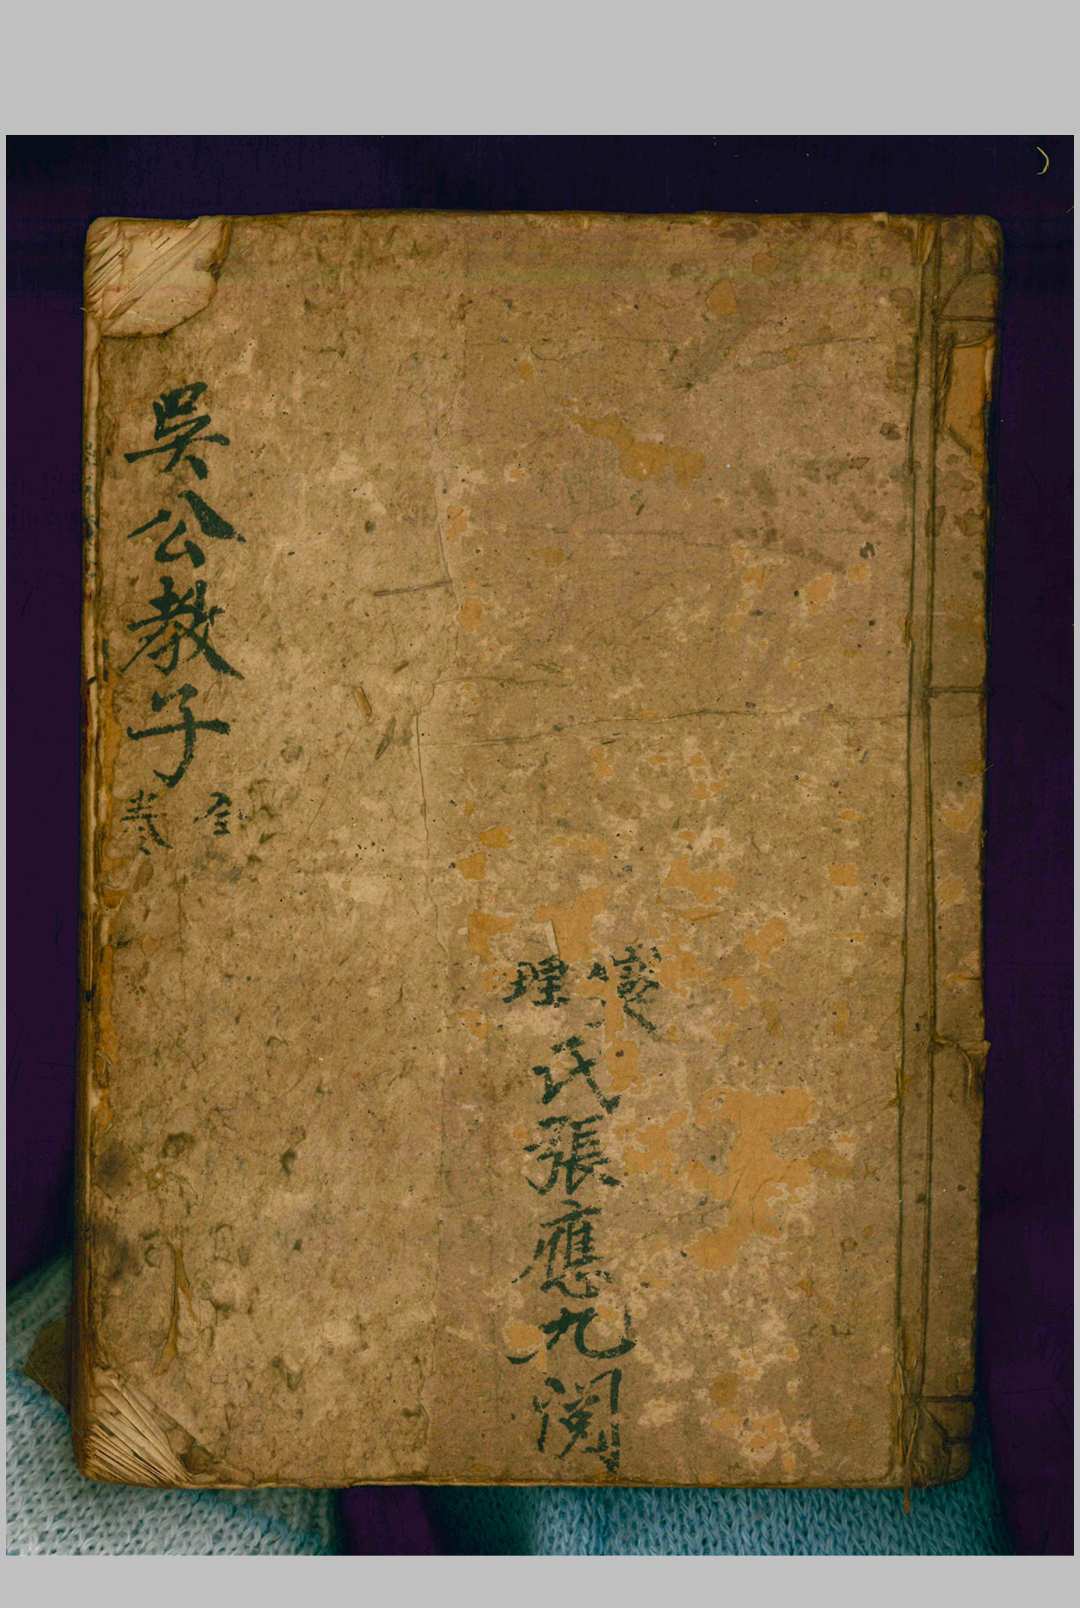 氏張應九閱
吳公教子
全卷